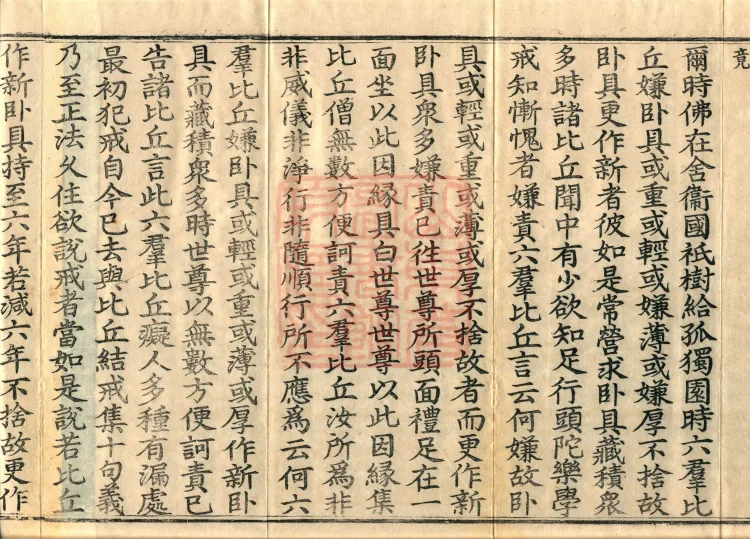 竟
爾時佛在舍衞國祇樹給孤獨園時六羣比
丘嫌卧具或重或輕或嫌薄或嫌厚不捨故
卧具更作新者彼如是常營求卧具藏積衆
多時諸比丘聞中有少欲知足行頭陀樂學
戒知慚愧者嫌責六羣比丘言云何嫌故卧
具或輕或重或薄或厚不捨故者而更作新
卧具衆多嫌責已徃世尊所頭面禮足在一
面坐以此因緣具白世尊世尊以此因緣集
比丘僧無數方便訶責六羣比丘汝所爲非
非威儀非淨行非隨順行所不應爲云何六
羣比丘嫌卧具或輕或重或薄或厚作新卧
具而藏積衆多時世尊以無數方便訶責已
告諸比丘言此六羣比丘癡人多種有漏處
最初犯戒自今已去與比丘結戒集十句義
乃至正法久住欲說戒者當如是說若比丘
作新卧具持至六年若減六年不捨故更作